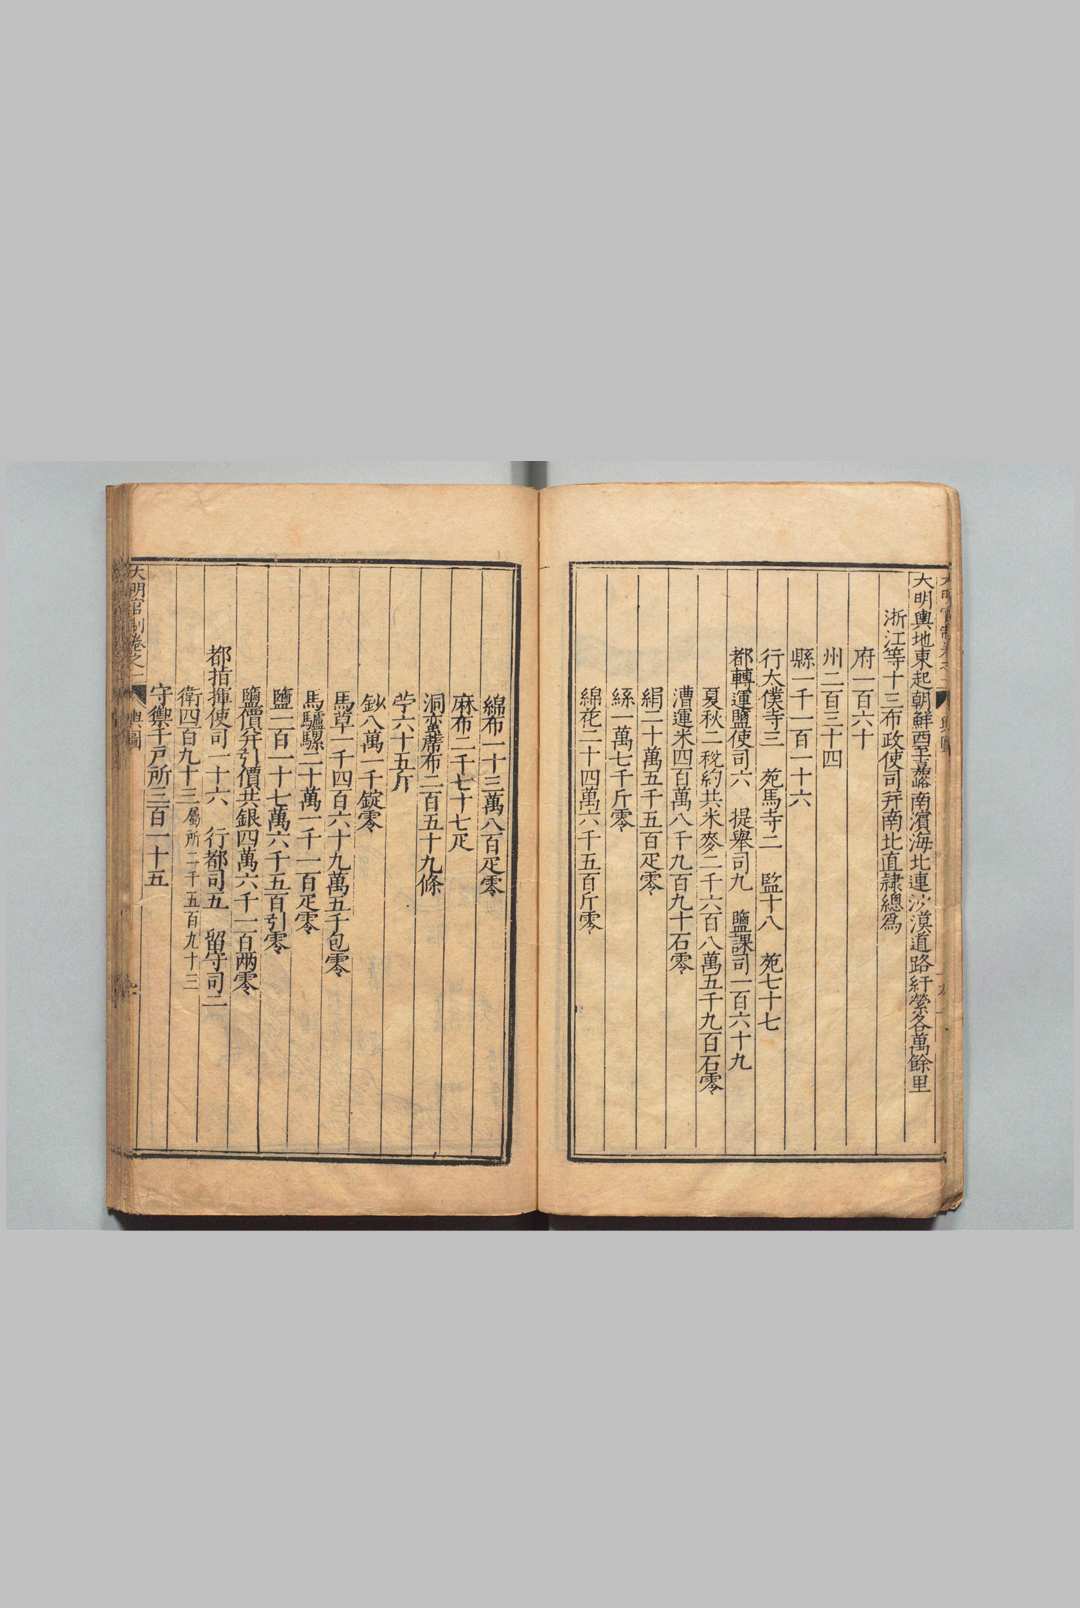 大明輿地東起朝鮮西至嘉峪南濱海北連沙漠道路紆縈各萬餘里
浙江等十三布政使司并南北直隸總爲
府一百六十
州二百三十四
縣一千一百一十六
行太僕寺三　苑馬寺二　監十八　苑七十七
都轉運鹽使司六　提舉司九　鹽課司一百六十九
夏秋二稅約共米麥二千六百八萬五千九百石零
漕運米四百萬八千九百九十石零
絹二十萬五千五百疋零
絲一萬七千斤零
綿花二十四萬六千五百斤零
綿布一十三萬八百疋零
麻布二千七十七疋
洞蠻蔴布二百五十九條
苧六十五斤
鈔八萬一千錠零
馬草一千四百六十九萬五千包零
馬驢騾二十萬一千一百疋零
鹽二百一十七萬六千五百引零
鹽價并引價共銀四萬六千一百兩零
都指揮使司一十六　行都司五　留守司二
衛四百九十三屬所二千五百九十三
守禦千戶所三百一十五
大明官制卷之一　輿圖